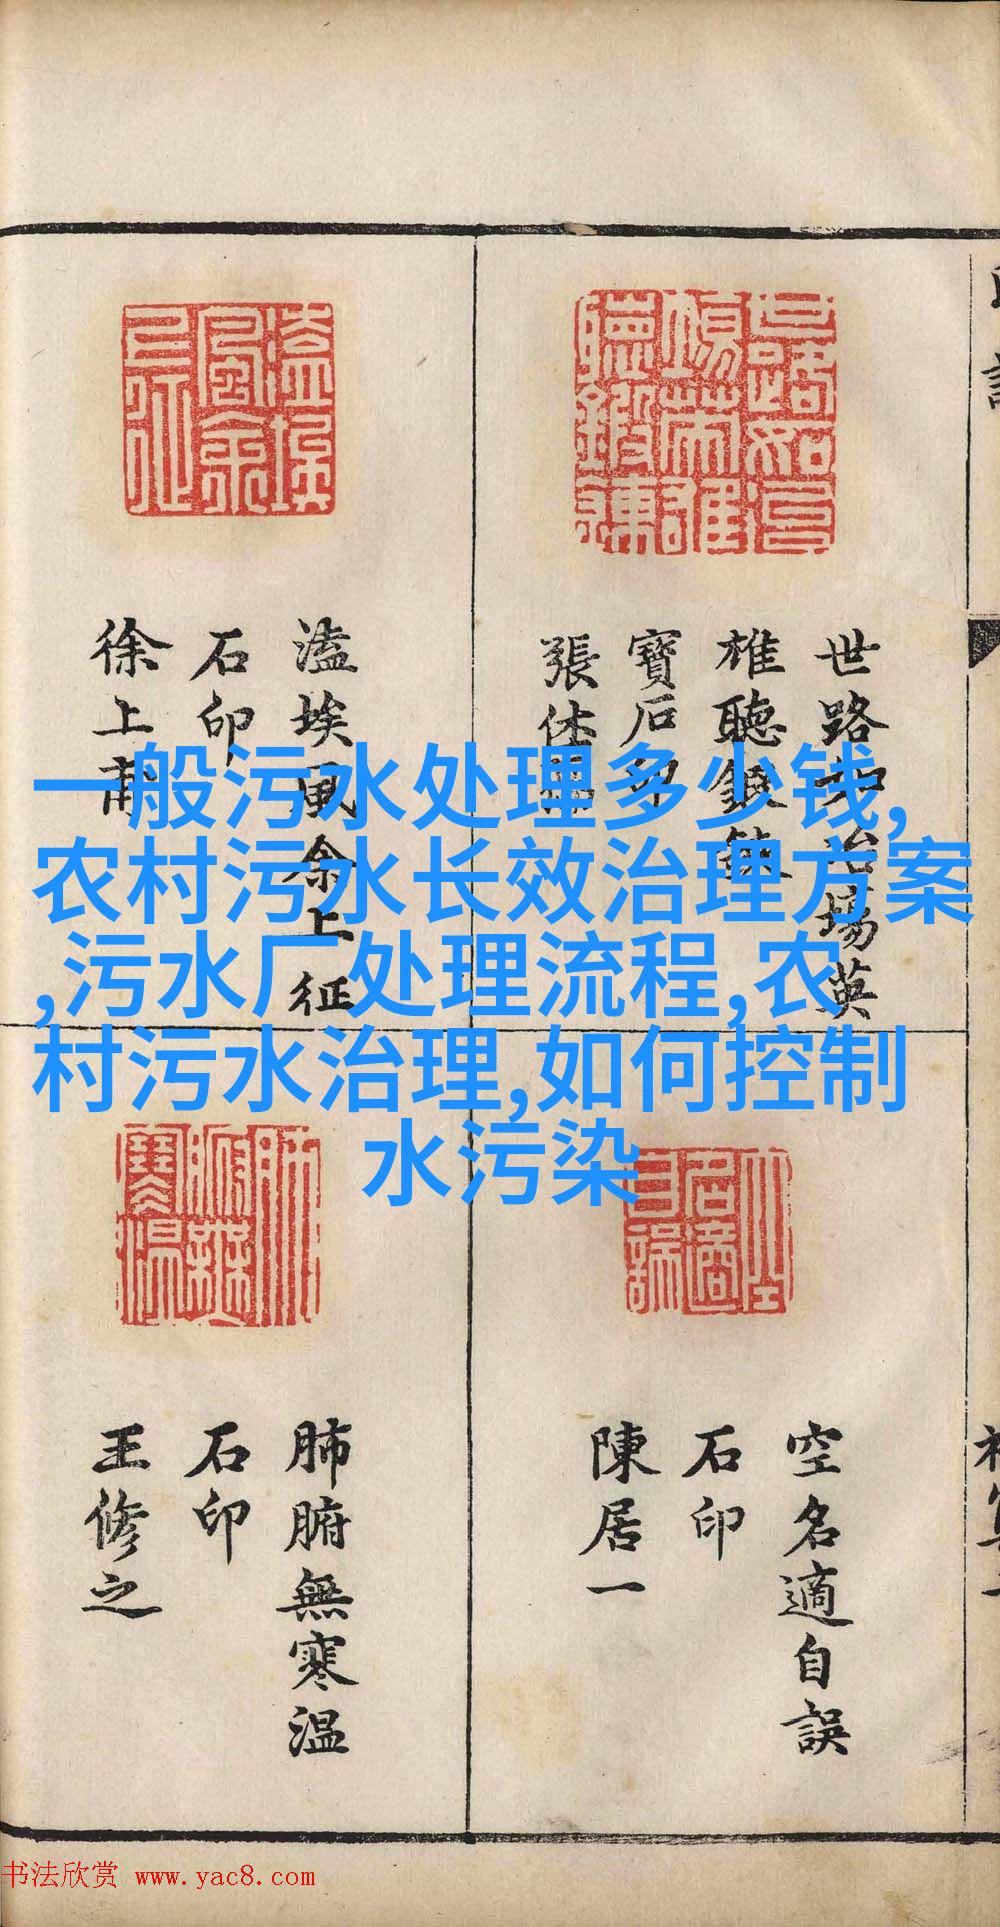 世路如冶場英
雄聽鍛鍊
寶石印
張
溘埃風余上征
石印
徐上甫
一般污水处理多少钱,
农村污水长效治理方案
,污水厂处理流程,农
村污水治理,如何控制
水污染
空名適自誤
石印
陳居一
肺腑無寒温
石印
王修之
书法欣赏 www.yac8.com